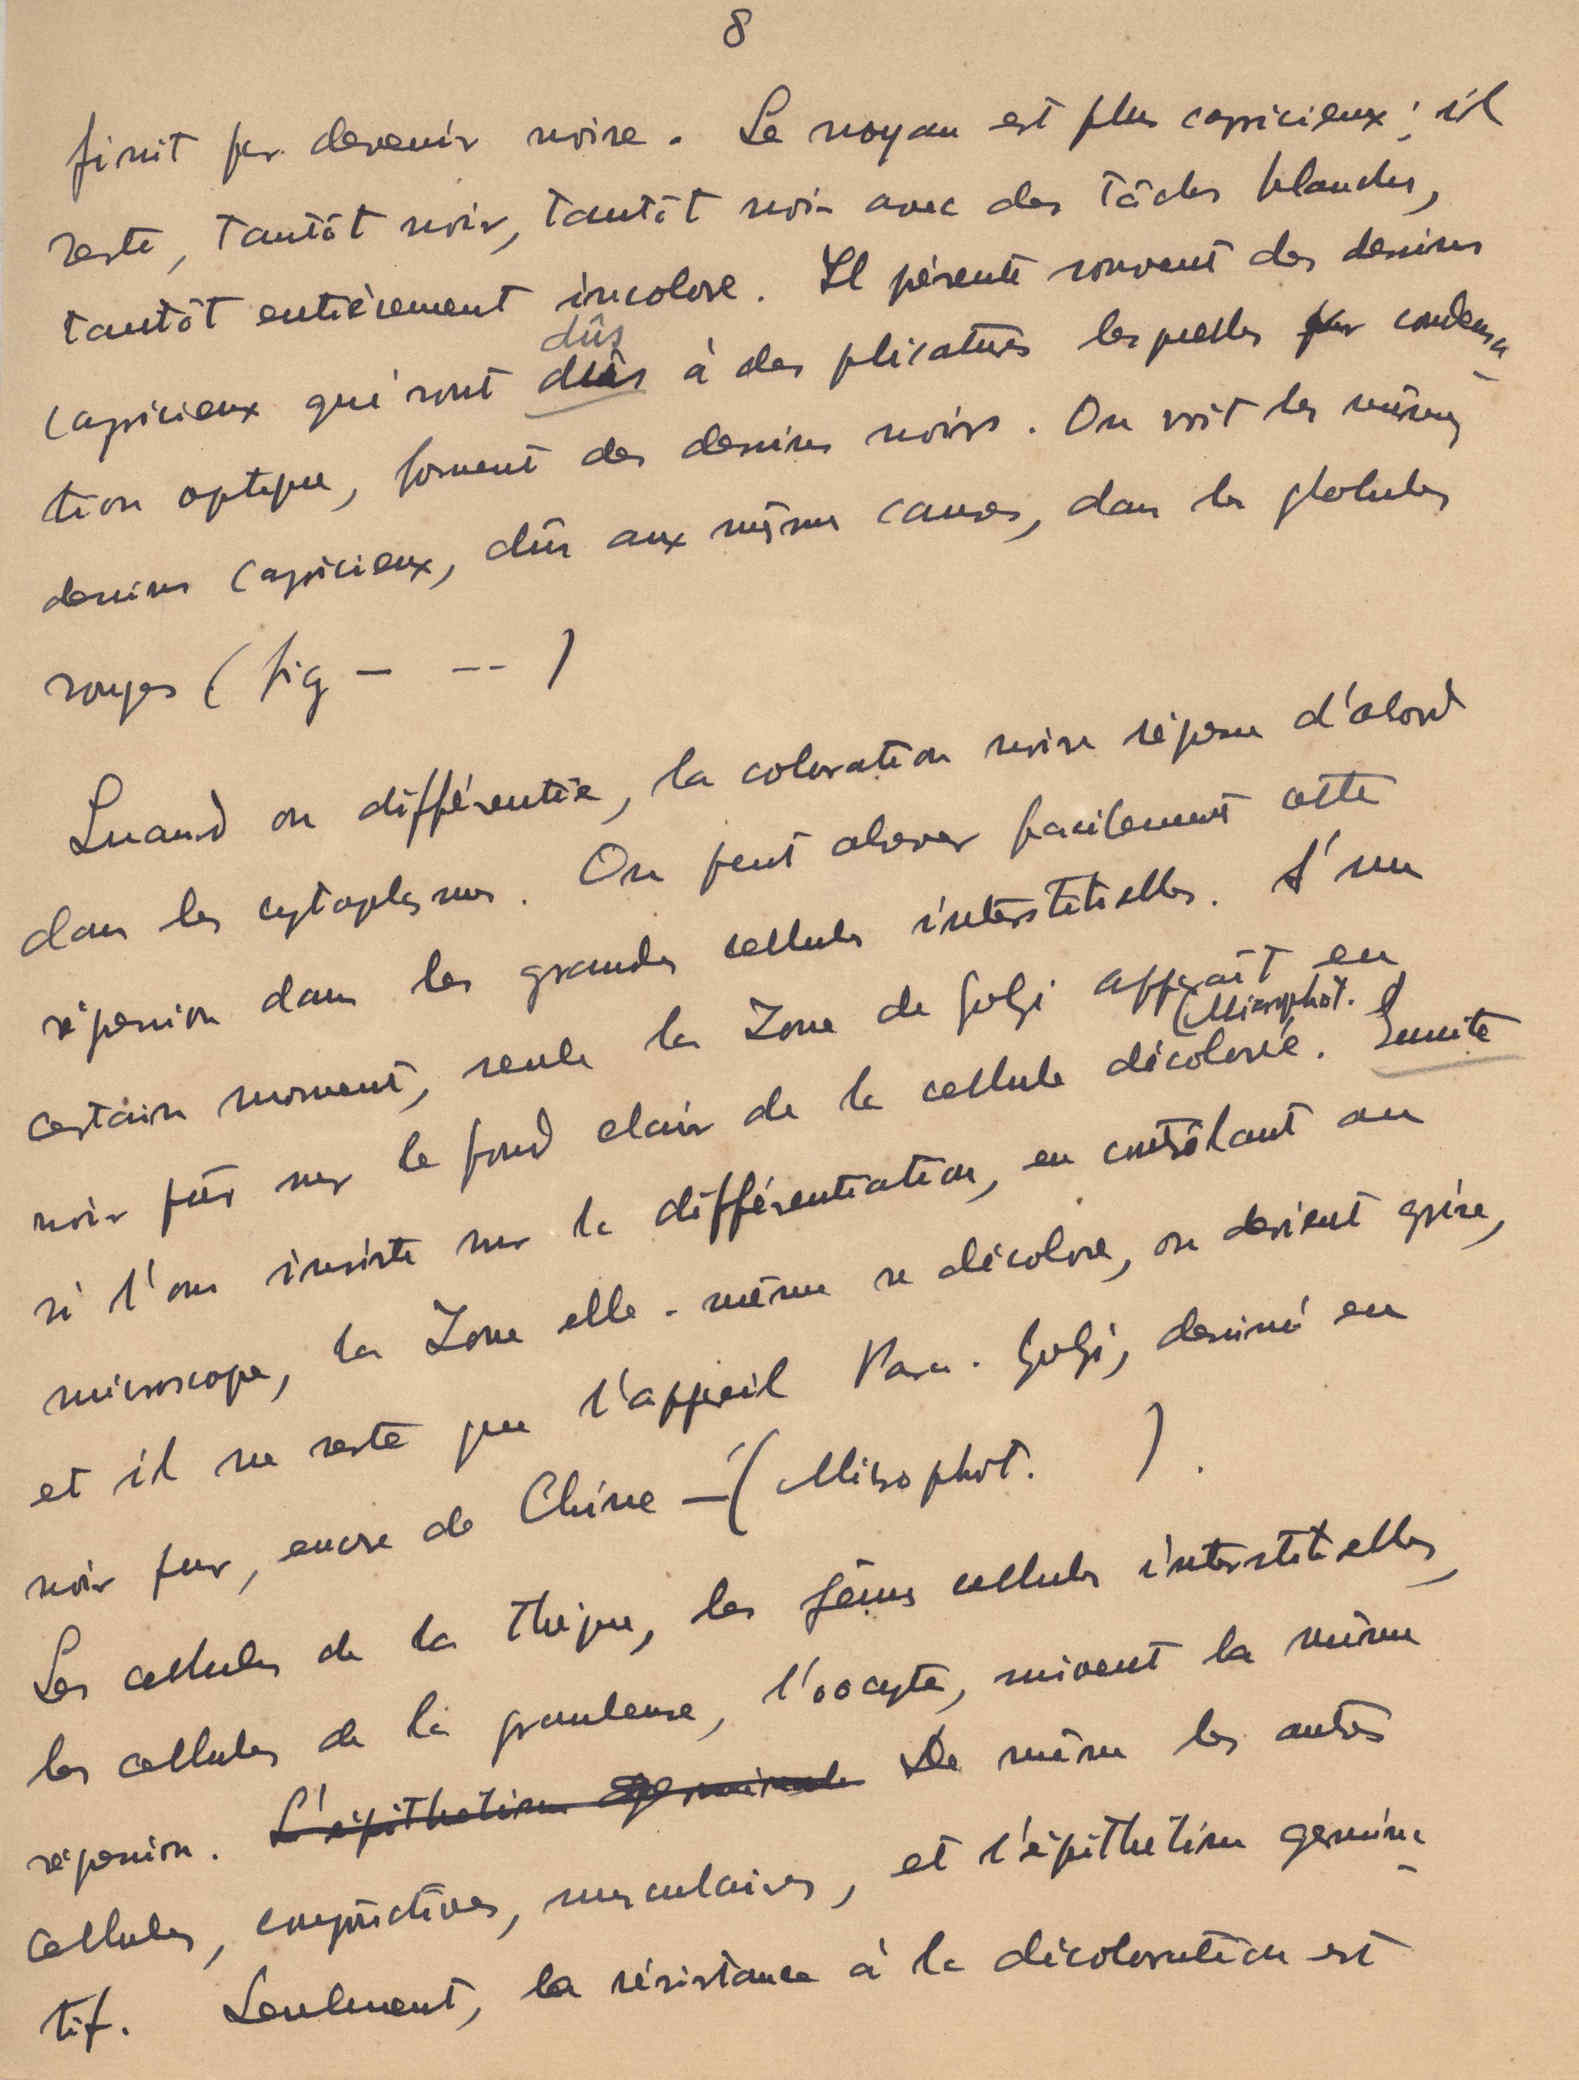 8
finit par devenir noire. Le noyau est plus capricieux; il
reste, tantôt noir, tantôt noir avec des tâches blanches,
tantôt entièrement incolore. Il présente souvent des dessins
dûs
capricieux qui sont dûs à des plicatures lesquelles par condensa-
tion optique, forment des dessins noirs. On voit les mêmes
dessins capricieux, dûs aux mêmes causes, dans les globules
rouges ( fig - -- )
Quand on différentie, la coloration noire régresse d'abord
dans les cytoplasmes. On peut observer facilement cette
régression dans les grandes cellules interstitielles. A un
certain moment, seule la Zone de Golgi apparaît en
(Microphot.
noir pûr sur le fond clair de la cellule décolorée. Ensuite
si l'on insiste sur la différentiation, en contrôlant au
microscope, la Zone elle-même se décolore, ou devient grise,
et il ne reste que l'appareil Para-Golgi, dessiné en
noir pur, encre de Chine - ( Microphot. ).
Les cellules de la thèque, les jeunes cellules interstitielles,
les cellules de la granuleuse, l'oocyte, suivent la même
régression. L'épithelium germinale De même les autres
cellules, conjonctives, musculaires, et l'épithelium germina-
tif. Seulement, la résistance à la décoloration est